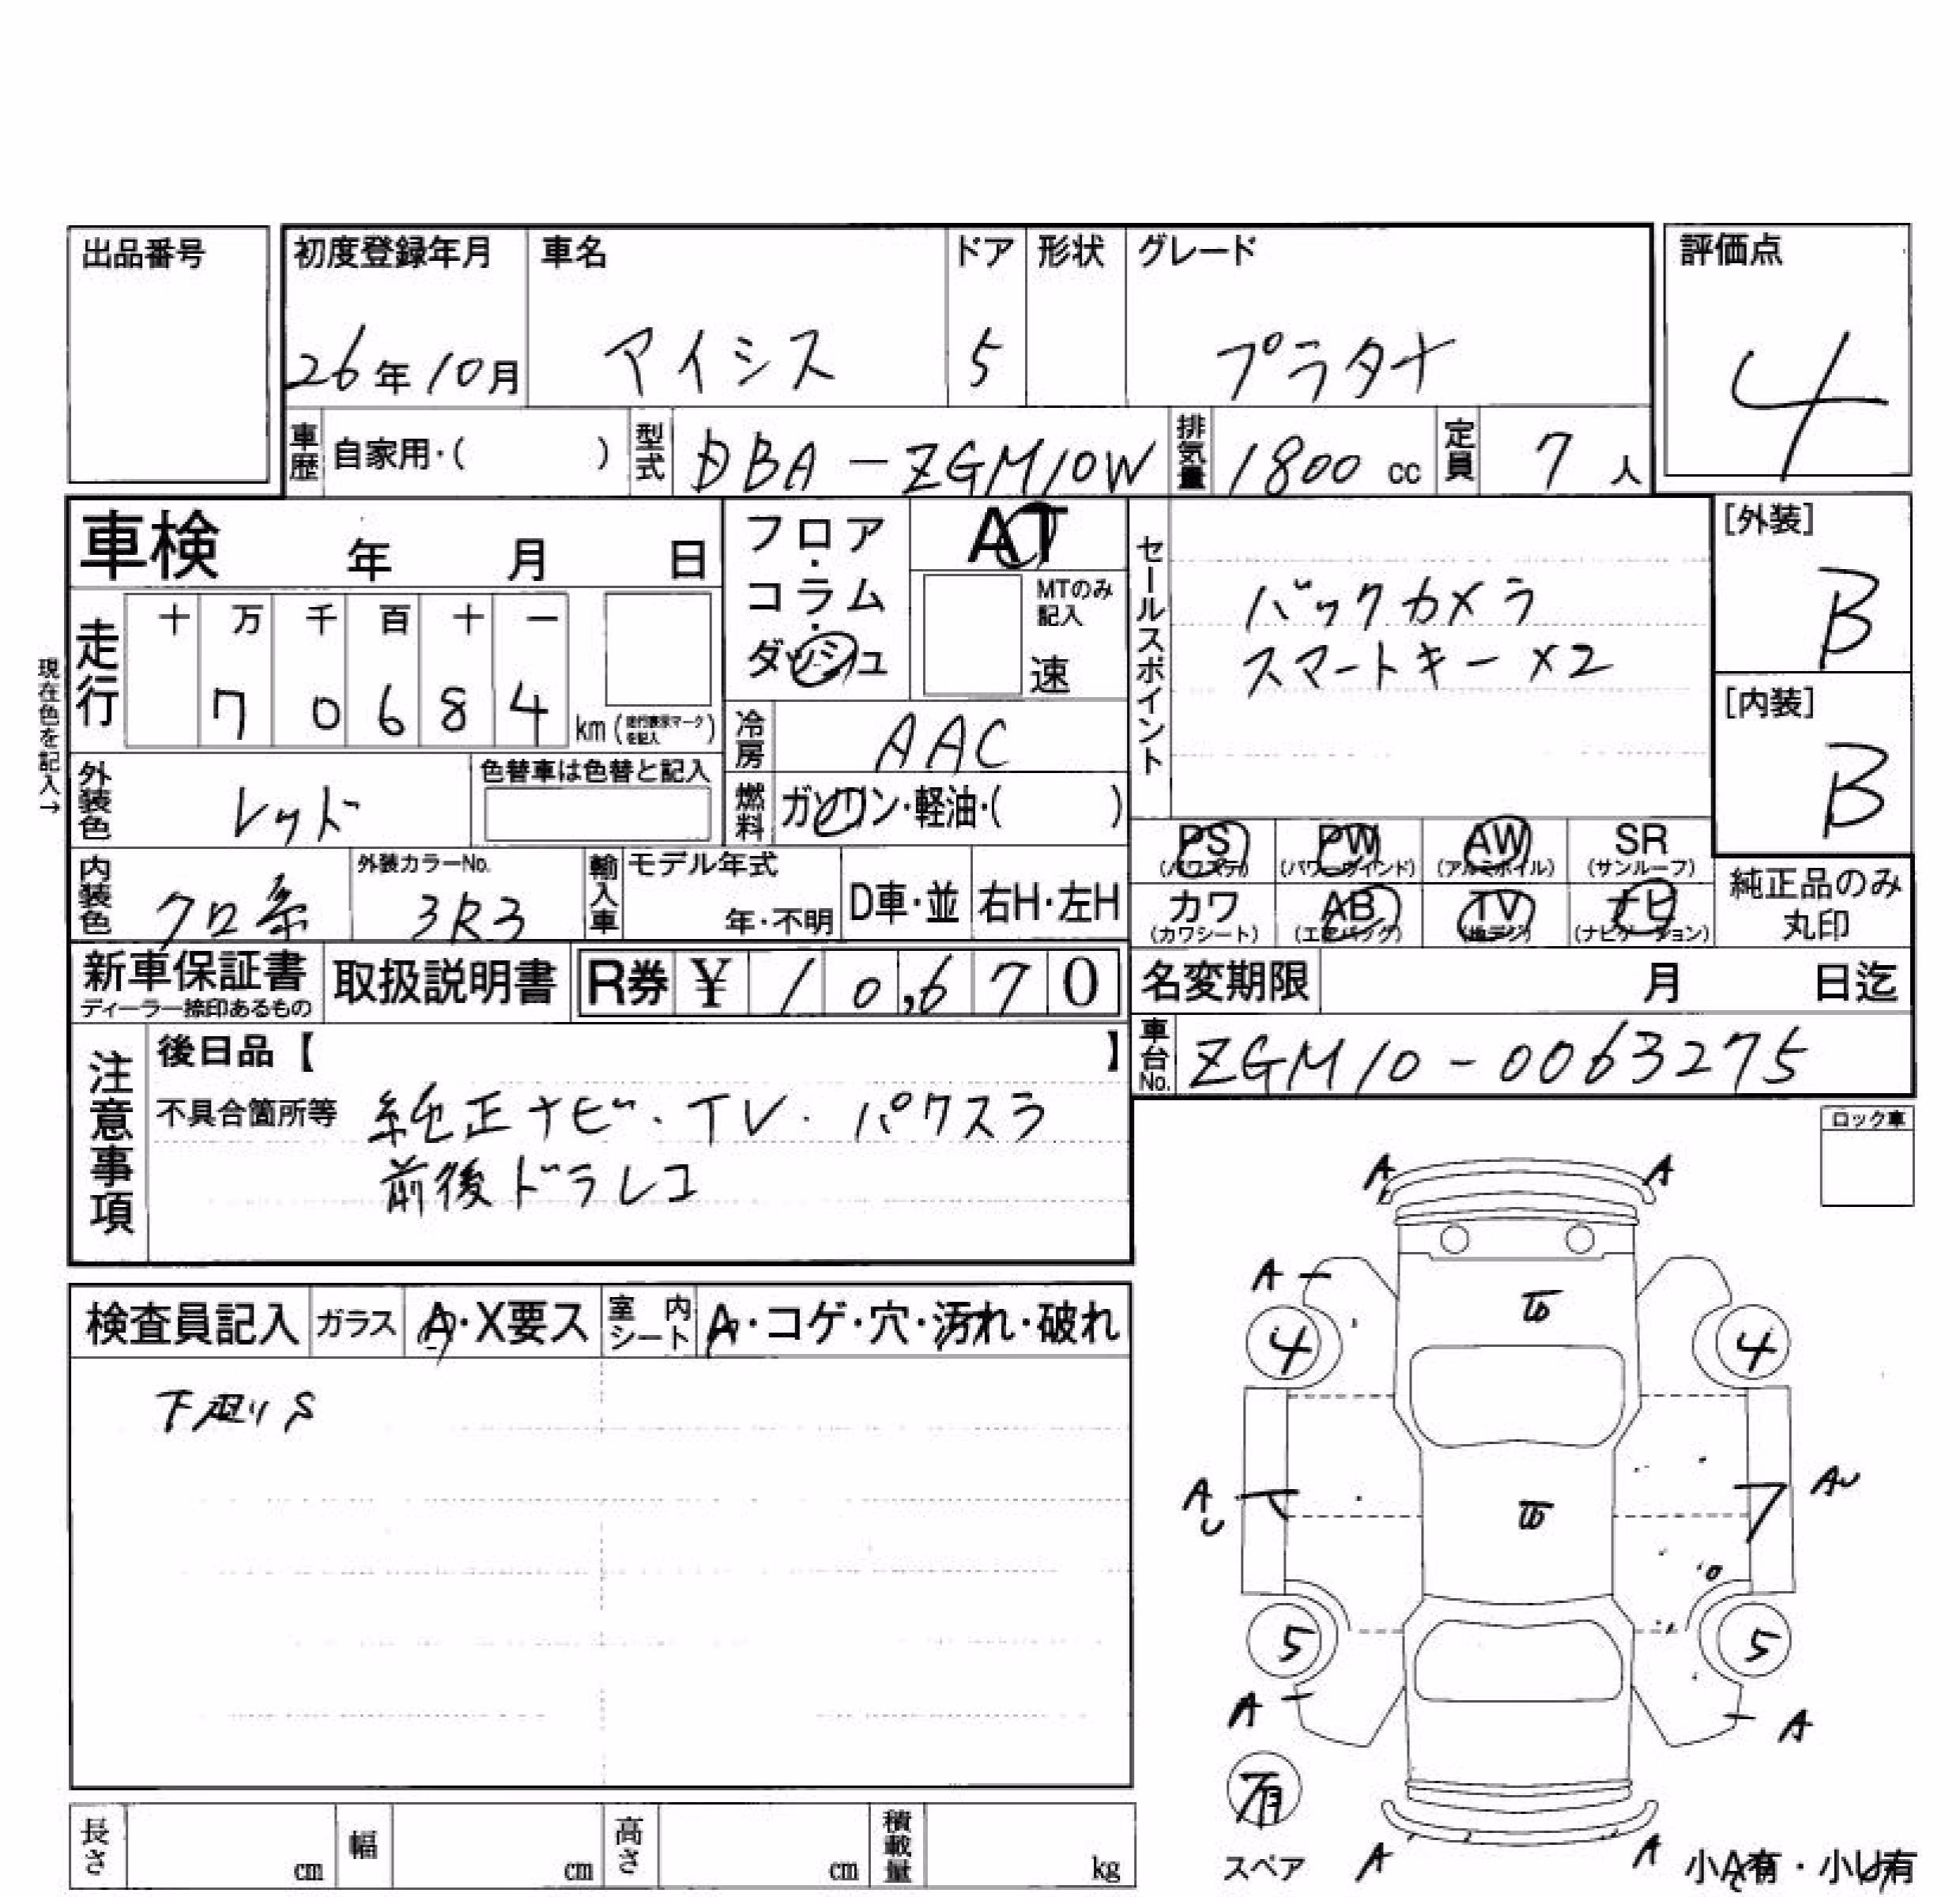 出品番号
初度登録年月 車名 ドア 形状 グレード 評価点
26年10月 アイシス 5 プラタナ 4
車歴 自家用・( ) 型式 DBA-ZGM10W 排気量 1800 cc 定員 7 人
車検 年 月 日
フロア・コラム・ダッシュ AT
MTのみ記入
速
セールスポイント
バックカメラ
スマートキー×2
[外装]
B
[内装]
B
現在色を記入→
走行 十 万 千 百 十 一
7 0 6 8 4 km (走行表示マークを記入)
冷房 AAC
外装色 レッド 色替車は色替と記入
燃料 ガソリン・軽油・( )
PS PW AW SR
(パワステ) (パワーウインド) (アルミホイル) (サンルーフ)
内装色 クロ系 外装カラーNo. 3R3 輸入車 モデル年式 年・不明 D車・並 右H・左H
カワ AB TV ナビ
(カワシート) (エアバッグ) (地デジ) (ナビゲーション)
純正品のみ
丸印
新車保証書 取扱説明書 R券 ¥ 10,670
ディーラー捺印あるもの
名変期限 月 日迄
車台No. ZGM10-0063275
注意事項
後日品【 】
不具合箇所等 純正ナビ・TV・パワスラ
前後ドラレコ
ロック車
検査員記入 ガラス A・X要ス 室内シート A・コゲ・穴・汚れ・破れ
下廻りS
A A
A
4 4
A AU
U
5 5
A A
有
スペア A A 小A有・小U有
長さ cm 幅 cm 高さ cm 積載量 kg